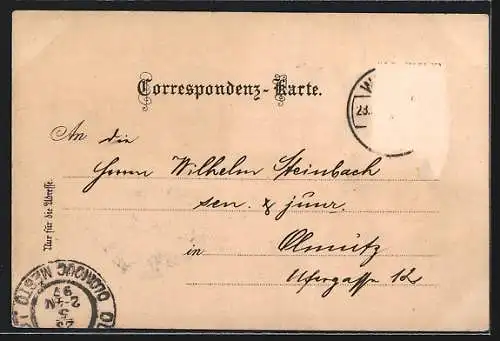 Correspondenz-Karte.
23.
An die
Herrn Wilhelm Steinbach
sen. & junr.
in Olmütz
Ufergasse 12
Nur für die Adresse.
OLOMOUC MĚSTO
23
5
97
2-3N